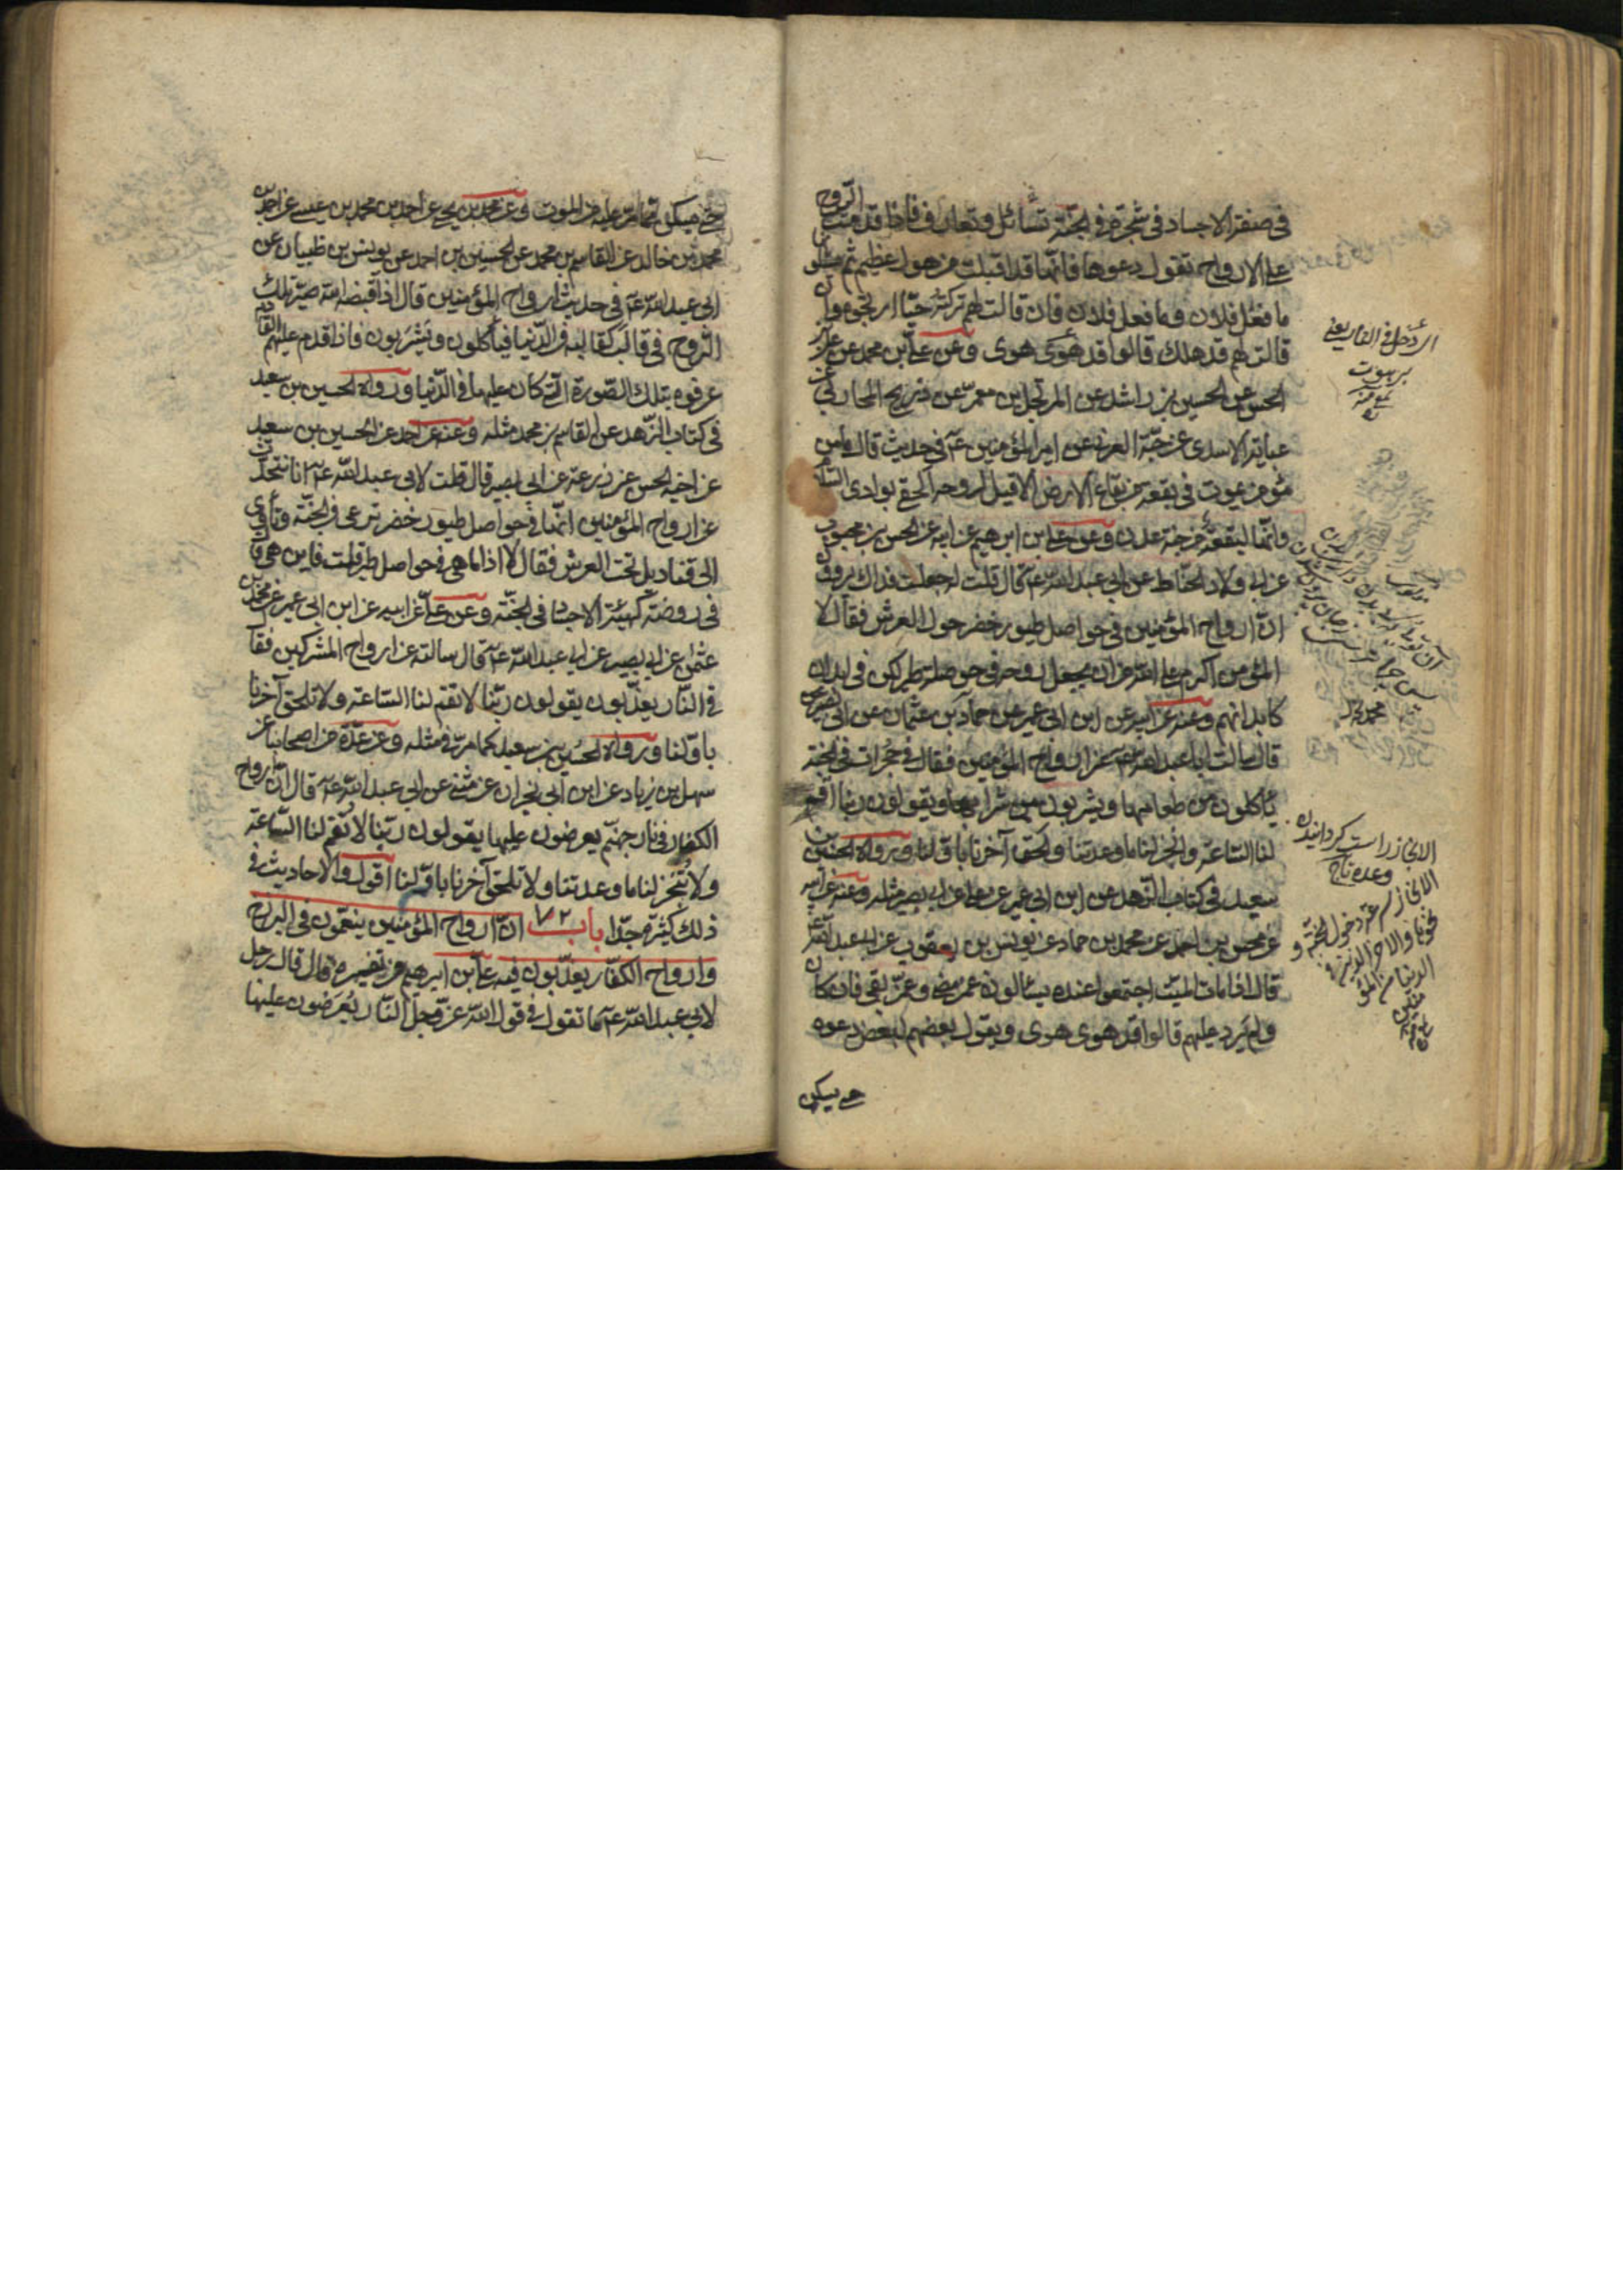 في صفة الاجساد في شجرة في الجنة تسائل وتعارف فاذا قدمت الروح
على الارواح تقول دعوها فانها قد اقبلت من هول عظيم ثم يسئلو
ن ما فعل فلان وما فعل فلان فان قالت لهم تركته حيا ارتجوه وان
قالت لهم قد هلك قالوا قد هوى هوى وعن علي بن محمد عن علي بن
الحسن عن الحسين بن راشد عن المرتجل بن معمر عن ذريح المحاربي عن
عباية الاسدي عن حبة العرني عن امير المؤمنين عم في حديث قال ما من
مؤمن يموت في بقعة من بقاع الارض الا قيل لروحه الحقي بوادي السلام
وانها لبقعة من جنة عدن وعن علي بن ابرهيم عن ابيه عن الحسن بن محبوب
عن ابي ولاد الحناط عن ابي عبد الله عم قال قلت له جعلت فداك يروون
ان ارواح المؤمنين في حواصل طيور خضر حول العرش فقال لا
المؤمن اكرم على الله من ان يجعل روحه في حوصلة طير لكن في ابدان
كابدانهم وعنه عن ابيه عن ابن ابي عمير عن حماد بن عثمان عن ابي بصير
قال سالت ابا عبد الله عم عن ارواح المؤمنين فقال في حجرات في الجنة
ياكلون من طعامها ويشربون من شرابها ويقولون ربنا اقم
لنا الساعة وانجز لنا ما وعدتنا والحق آخرنا باولنا ورواه الحسين بن
سعيد في كتاب الزهد عن ابن ابي عمير عن علي عن ابي بصير مثله وعنه عن ابيه
عن محسن بن احمد عن محمد بن حماد عن يونس بن يعقوب عن ابي عبد الله عم
قال اذا مات الميت اجتمعوا عنده يسئالونه عمن مضى وعمن بقي فان كان
ولم يرد عليهم قالوا قد هوى هوى ويقول بعضهم لبعض دعوه
حتى يسكن
اي دخل في النار يعني
برهوت
محمد
الانجاز راست گردانيدن
وعده
حتى يسكن مما مر عليه من الموت وعن محمد بن يحيى عن احمد بن محمد بن عيسى عن احمد بن
محمد بن خالد عن القاسم بن محمد عن الحسين بن احمد عن يونس بن ظبيان عن
ابي عبد الله عم في حديث ارواح المؤمنين قال اذا قبضه الله صير تلك
الروح في قالب كقالبه في الدنيا فيأكلون ويشربون فاذا قدم عليهم القادم
عرفوه بتلك الصورة التي كان عليها في الدنيا ورواه الحسين بن سعيد
في كتاب الزهد عن القاسم بن محمد مثله وعنه عن احمد عن الحسين بن سعيد
عن اخيه الحسن عن زرعة عن ابي بصير قال قلت لابي عبد الله عم انا نتحدث
عن ارواح المؤمنين انها في حواصل طيور خضر ترعى في الجنة وتأوي
الى قناديل تحت العرش فقال لا اذا ما هي في حواصل طير قلت فاين هي قال
في روضة كهيئة الاجساد في الجنة وعن علي عن ابيه عن ابن ابي عمير عن محمد بن
عثمن عن ابي بصير عن ابي عبد الله عم قال سالته عن ارواح المشركين فقا
في النار يعذبون يقولون ربنا لا تقم لنا الساعة ولا تلحق آخرنا
باولنا ورواه الحسين بن سعيد كما مر في مثله وعن عدة من اصحابنا عن
سهل بن زياد عن ابن ابي نجران عن مثنى عن ابي عبد الله عم قال ان ارواح
الكفار في نار جهنم يعرضون عليها يقولون ربنا لا تقم لنا الساعة
ولا تنجز لنا ما وعدتنا ولا تلحق آخرنا باولنا اقول والاحاديث في
ذلك كثيرة جدا باب ٧٢ ان ارواح المؤمنين ينعمون في البرزخ
وارواح الكفار يعذبون فيه علي بن ابرهيم في تفسيره قال قال رجل
لابي عبد الله عم ما تقول في قول الله عز وجل النار يعرضون عليها